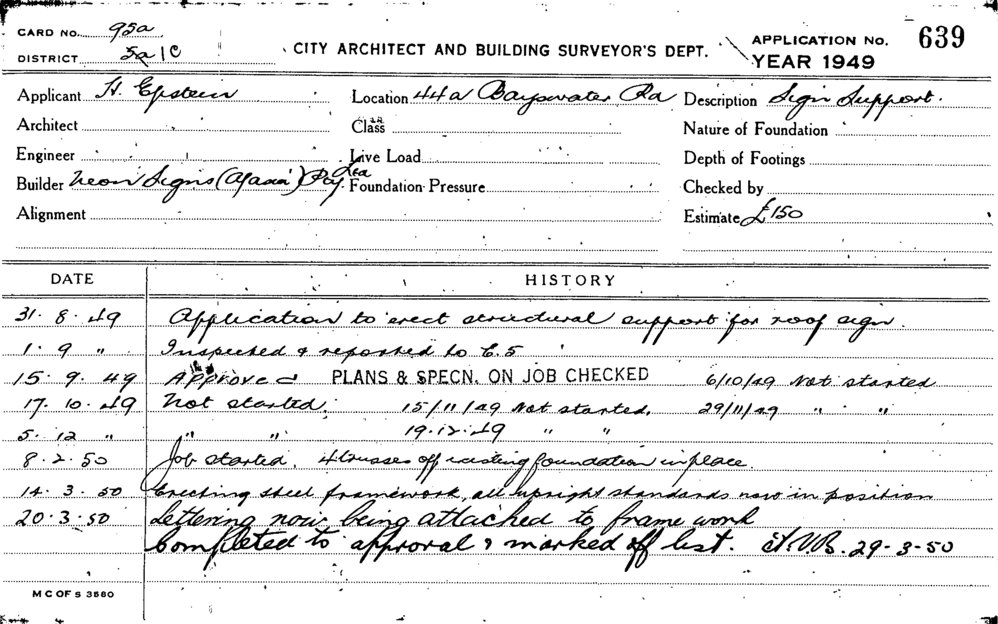 CARD No. 95a
DISTRICT 5a 1C
CITY ARCHITECT AND BUILDING SURVEYOR'S DEPT.
APPLICATION No. 639
YEAR 1949
Applicant H. Epstein
Location 44a Bayswater Rd
Description Sign Support.
Architect
Class
Nature of Foundation
Engineer
Live Load
Depth of Footings
Builder Neon Signs (A/asia) Pty. Ltd
Foundation Pressure
Checked by
Alignment
Estimate £150
DATE HISTORY
31. 8. 49 Application to erect structural support for roof sign.
1. 9 " Inspected & reported to C.S
15. 9. 49 Approved PLANS & SPECN. ON JOB CHECKED 6/10/49 Not started
17. 10. 49 Not started. 15/11/49 Not started. 29/11/49 " "
5. 12 " " " 19.12.49 " "
8. 2. 50 Job started. 4 trusses off existing foundation in place.
14. 3. 50 Erecting steel framework, all upright standards now in position
20. 3. 50 Lettering now being attached to frame work
Completed to approval & marked off list. 29-3-50
M C OF S 3580